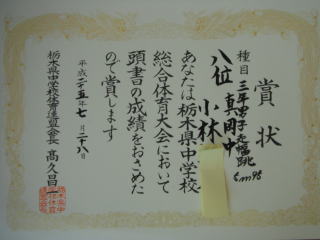 賞状
種目 三年男子走幅跳
6m98
八位 真岡中
小林
あなたは栃木県中学校
総合体育大会において
頭書の成績をおさめた
ので賞します
平成二十五年七月二十八日
栃木県中学校体育連盟会長 髙久昌一